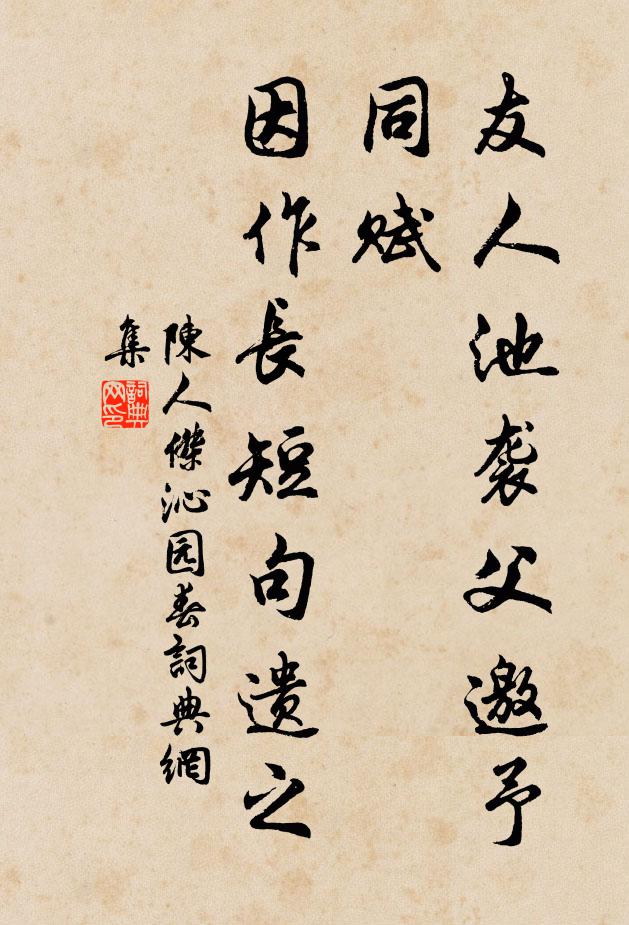 友人池袭父邀予
同赋
因作長短句遗之
陳人傑沁园春詞典網
集
詞典
网印